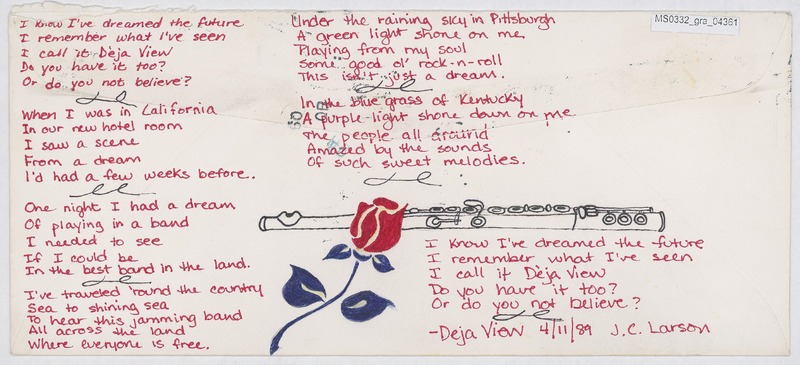 I know I've dreamed the future
I remember what I've seen
I call it Deja View
Do you have it too?
Or do you not believe?
When I was in California
In our new hotel room
I saw a scene
From a dream
I'd had a few weeks before..
One night I had a dream
Of playing in a band
I needed to see
If I could be
In the best band in the land.
I've traveled 'round the country
Sea to shining sea
To hear this jamming band
All across the land
Where everyone is free.
Under the raining sky in Pittsburgh
A green light shone on me
Playing from my soul
Some good ol' rock-n-roll
This isn't just a dream.
In the blue grass of Kentucky
A purple light shone down on me
The people all around
Amazed by the sounds
Of such sweet melodies.
I know I've dreamed the future
I remember what I've seen
I call it Deja View
Do you have it too?
Or do you not believe?
-Deja View 4/11/89 J.C. Larson
MS0332_gra_04361